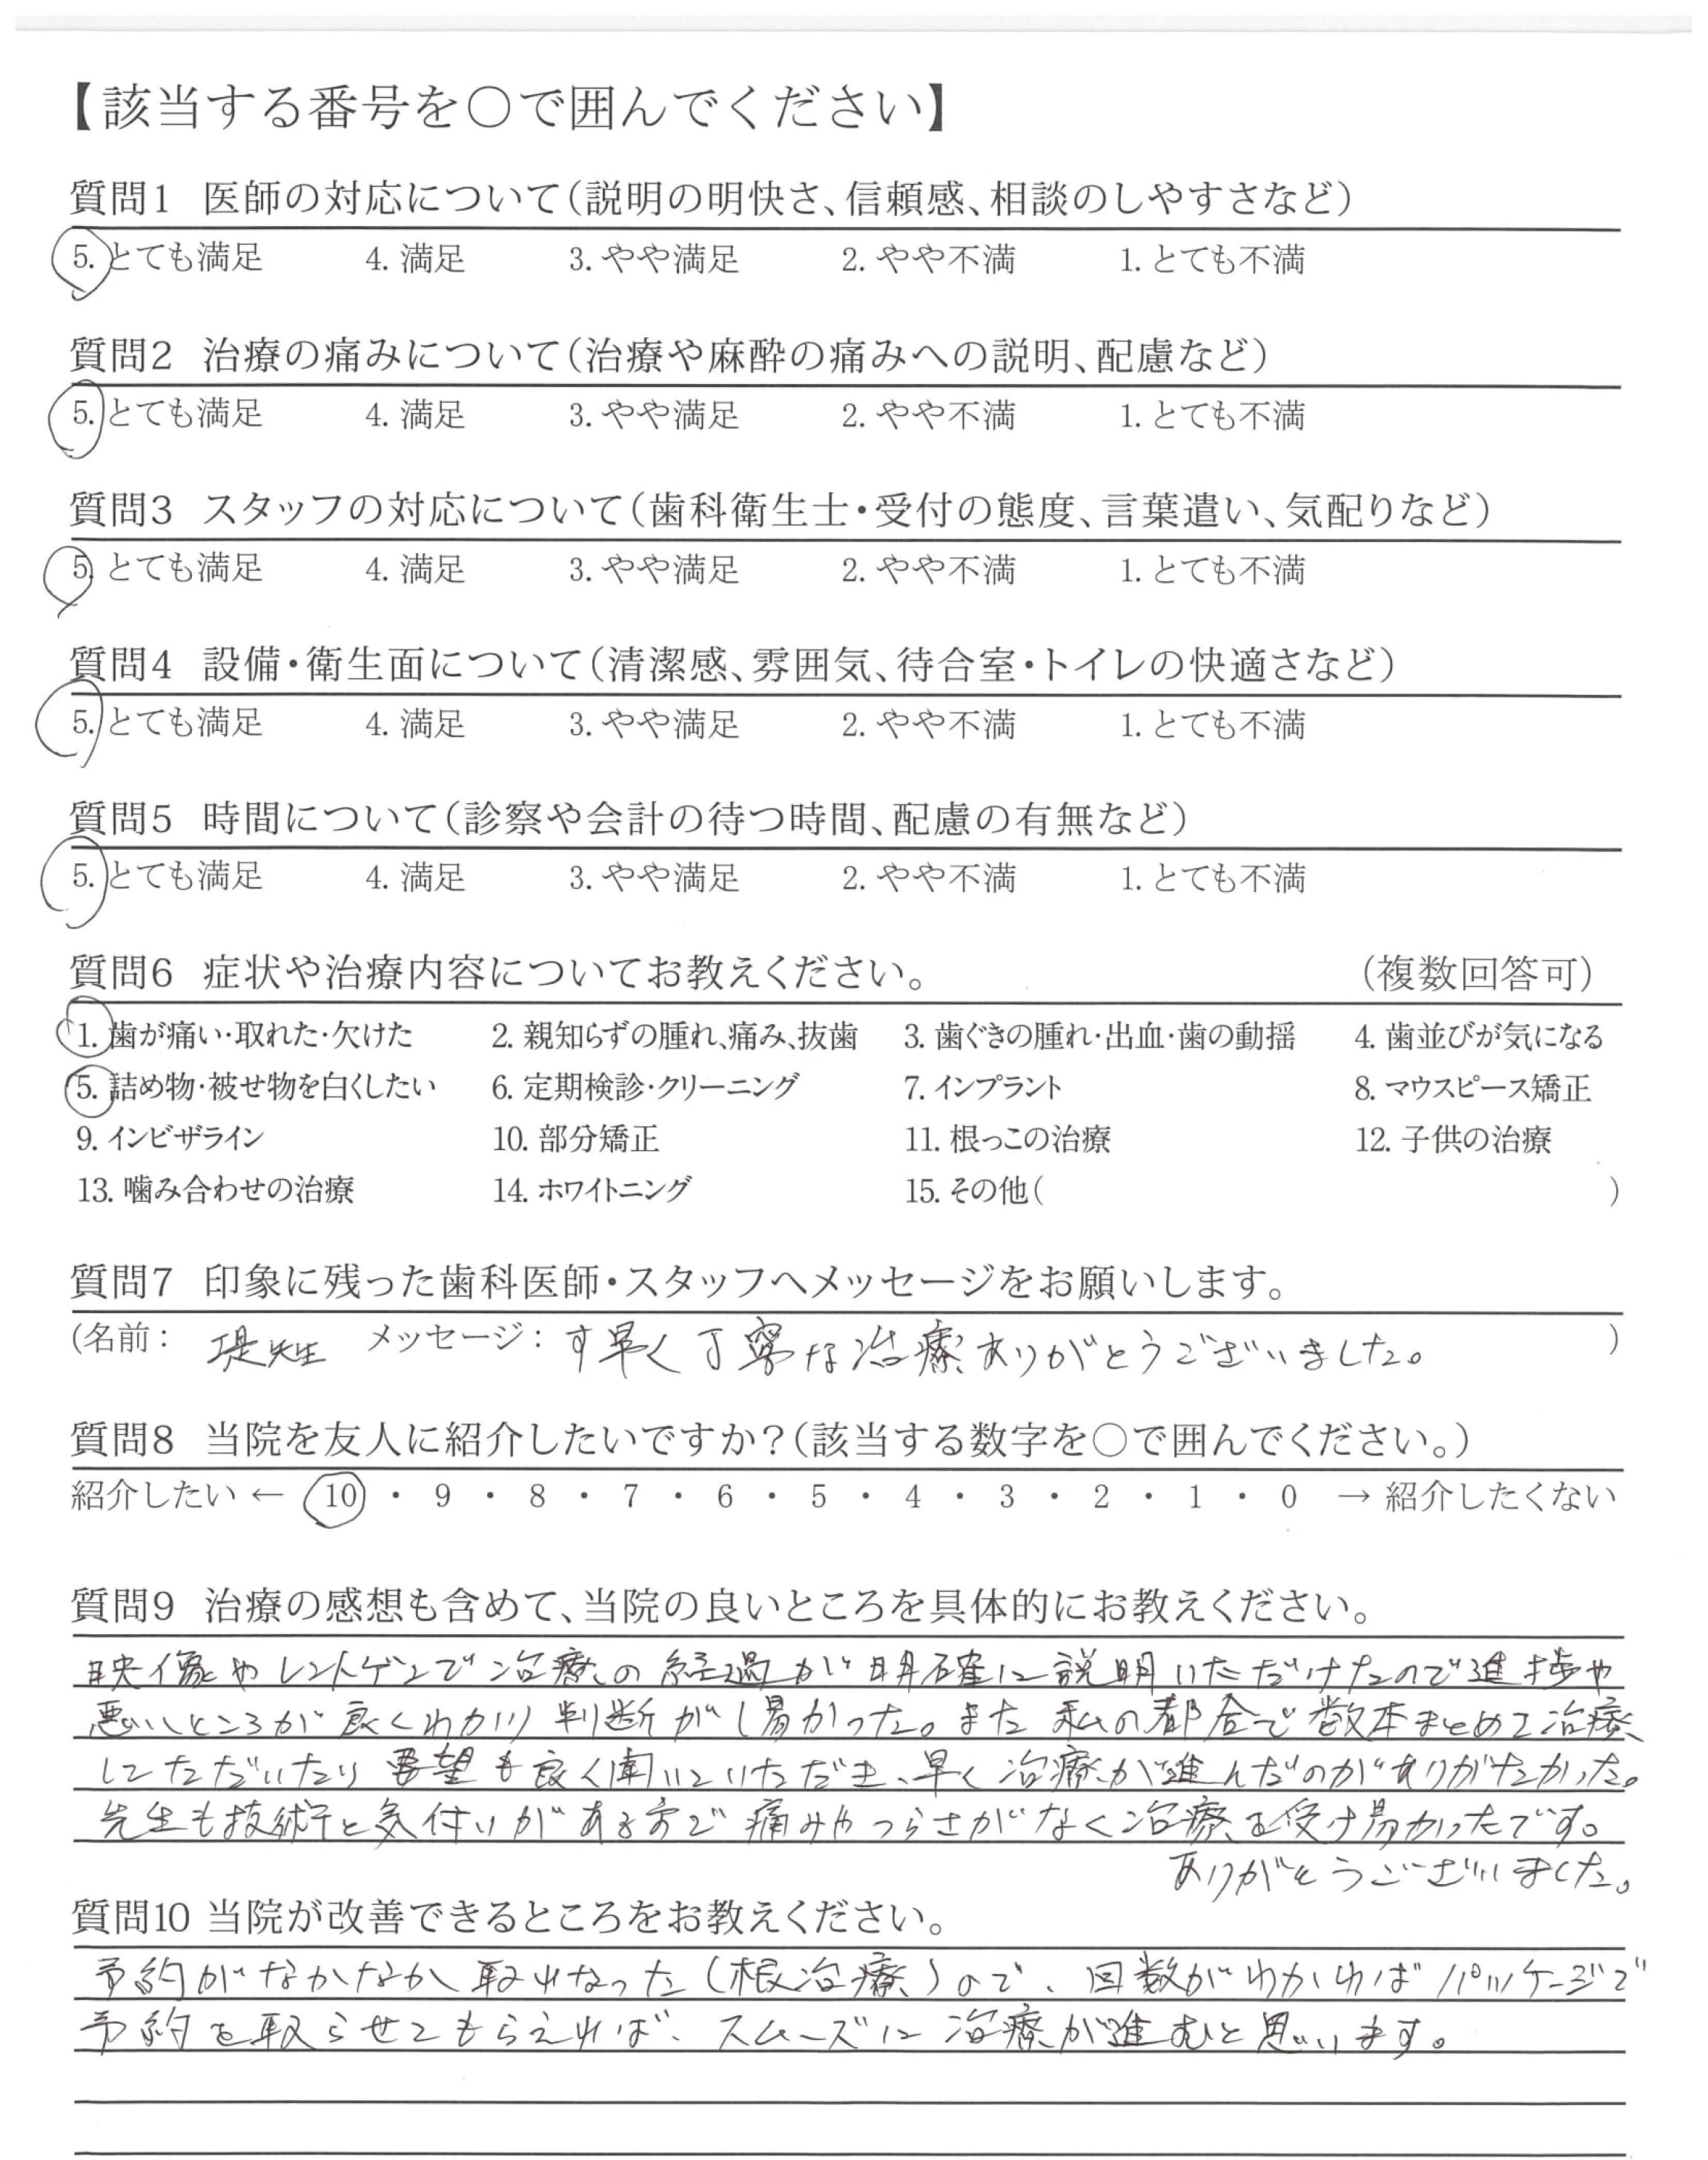 【該当する番号を○で囲んでください】
質問1 医師の対応について(説明の明快さ、信頼感、相談のしやすさなど)
5. とても満足 4. 満足 3. やや満足 2. やや不満 1. とても不満
質問2 治療の痛みについて(治療や麻酔の痛みへの説明、配慮など)
5. とても満足 4. 満足 3. やや満足 2. やや不満 1. とても不満
質問3 スタッフの対応について(歯科衛生士・受付の態度、言葉遣い、気配りなど)
5. とても満足 4. 満足 3. やや満足 2. やや不満 1. とても不満
質問4 設備・衛生面について(清潔感、雰囲気、待合室・トイレの快適さなど)
5. とても満足 4. 満足 3. やや満足 2. やや不満 1. とても不満
質問5 時間について(診察や会計の待つ時間、配慮の有無など)
5. とても満足 4. 満足 3. やや満足 2. やや不満 1. とても不満
質問6 症状や治療内容についてお教えください。 (複数回答可)
1. 歯が痛い・取れた・欠けた 2. 親知らずの腫れ、痛み、抜歯 3. 歯ぐきの腫れ・出血・歯の動揺 4. 歯並びが気になる
5. 詰め物・被せ物を白くしたい 6. 定期検診・クリーニング 7. インプラント 8. マウスピース矯正
9. インビザライン 10. 部分矯正 11. 根っこの治療 12. 子供の治療
13. 噛み合わせの治療 14. ホワイトニング 15. その他( )
質問7 印象に残った歯科医師・スタッフへメッセージをお願いします。
(名前: 堤先生 メッセージ: す早く丁寧な治療ありがとうございました。 )
質問8 当院を友人に紹介したいですか?(該当する数字を○で囲んでください。)
紹介したい ← 10 ・ 9 ・ 8 ・ 7 ・ 6 ・ 5 ・ 4 ・ 3 ・ 2 ・ 1 ・ 0 → 紹介したくない
質問9 治療の感想も含めて、当院の良いところを具体的にお教えください。
映像やレントゲンで治療の経過が明確に説明いただけたので進捗や
悪いところが良くわかり判断がし易かった。また私の都合で数本まとめて治療
してただいたり要望も良く聞いていただき、早く治療が進んだのがありがたかった。
先生も技術と気付いがある方で痛みやつらさがなく治療を受け易かったです。
ありがとうございました。
質問10 当院が改善できるところをお教えください。
予約がなかなか取れなった(根治療)ので、回数がわかればパッケージで
予約を取らせてもらえれば、スムーズに治療が進むと思います。